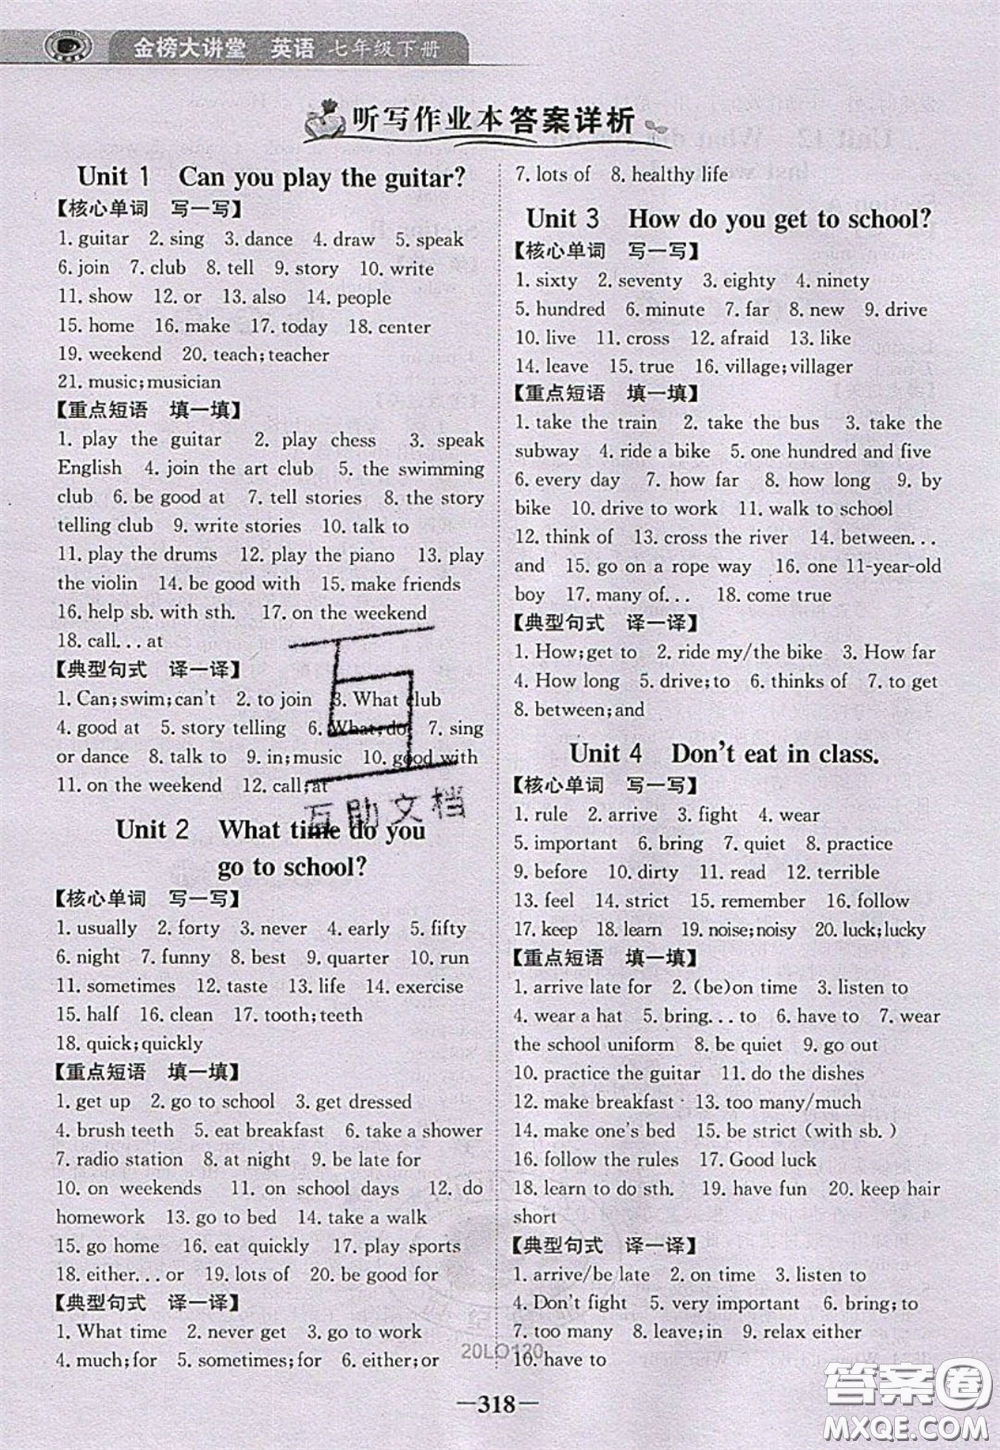 金榜大讲堂 英语 七年级下册
听写作业本答案详析
Unit 1 Can you play the guitar?
【核心单词 写一写】
1. guitar 2. sing 3. dance 4. draw 5. speak
6. join 7. club 8. tell 9. story 10. write
11. show 12. or 13. also 14. people
15. home 16. make 17. today 18. center
19. weekend 20. teach;teacher
21. music;musician
【重点短语 填一填】
1. play the guitar 2. play chess 3. speak
English 4. join the art club 5. the swimming
club 6. be good at 7. tell stories 8. the story
telling club 9. write stories 10. talk to
11. play the drums 12. play the piano 13. play
the violin 14. be good with 15. make friends
16. help sb. with sth. 17. on the weekend
18. call. . . at
【典型句式 译一译】
1. Can;swim;can't 2. to join 3. What club
4. good at 5. story telling 6. What;do 7. sing
or dance 8. talk to 9. in;music 10. good with
11. on the weekend 12. call;at
Unit 2 What time do you
go to school?
【核心单词 写一写】
1. usually 2. forty 3. never 4. early 5. fifty
6. night 7. funny 8. best 9. quarter 10. run
11. sometimes 12. taste 13. life 14. exercise
15. half 16. clean 17. tooth;teeth
18. quick;quickly
【重点短语 填一填】
1. get up 2. go to school 3. get dressed
4. brush teeth 5. eat breakfast 6. take a shower
7. radio station 8. at night 9. be late for
10. on weekends 11. on school days 12. do
homework 13. go to bed 14. take a walk
15. go home 16. eat quickly 17. play sports
18. either. . . or 19. lots of 20. be good for
【典型句式 译一译】
1. What time 2. never get 3. go to work
4. much;for 5. sometimes;for 6. either;or
7. lots of 8. healthy life
Unit 3 How do you get to school?
【核心单词 写一写】
1. sixty 2. seventy 3. eighty 4. ninety
5. hundred 6. minute 7. far 8. new 9. drive
10. live 11. cross 12. afraid 13. like
14. leave 15. true 16. village;villager
【重点短语 填一填】
1. take the train 2. take the bus 3. take the
subway 4. ride a bike 5. one hundred and five
6. every day 7. how far 8. how long 9. by
bike 10. drive to work 11. walk to school
12. think of 13. cross the river 14. between...
and 15. go on a rope way 16. one 11-year-old
boy 17. many of. . . 18. come true
【典型句式 译一译】
1. How;get to 2. ride my/the bike 3. How far
4. How long 5. drive;to 6. thinks of 7. to get
8. between;and
Unit 4 Don't eat in class.
【核心单词 写一写】
1. rule 2. arrive 3. fight 4. wear
5. important 6. bring 7. quiet 8. practice
9. before 10. dirty 11. read 12. terrible
13. feel 14. strict 15. remember 16. follow
17. keep 18. learn 19. noise;noisy 20. luck;lucky
【重点短语 填一填】
1. arrive late for 2. (be)on time 3. listen to
4. wear a hat 5. bring. . . to 6. have to 7. wear
the school uniform 8. be quiet 9. go out
10. practice the guitar 11. do the dishes
12. make breakfast 13. too many/much
14. make one's bed 15. be strict (with sb. )
16. follow the rules 17. Good luck
18. learn to do sth. 19. have fun 20. keep hair
short
【典型句式 译一译】
1. arrive/be late 2. on time 3. listen to
4. Don't fight 5. very important 6. bring;to
7. too many 8. leave in 9. relax either
10. have to
互助文档
20LO120
—318—
答案圈
MXQE.COM